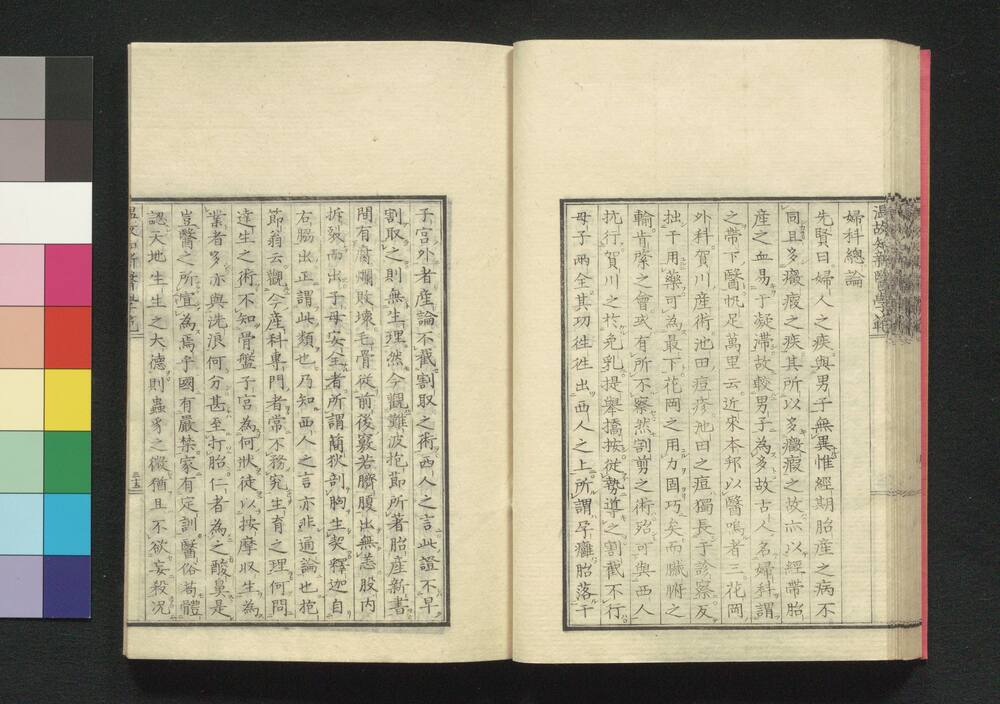 温故知新醫學範
婦科總論
先賢曰婦人之疾與男子無異惟經期胎產之病不
同且多癥瘕之疾其所以多癥瘕之故亦以經帶胎
產之血易于凝滞故較男子為多故古人名婦科謂
之帶下醫帆足萬里云近來本邦以醫鳴者三花岡
外科賀川産術池田痘疹池田之痘獨長于診察友
拙于用藥可為最下花岡之用力固巧矣而臓腑之
輸肯綮之會或有所不察然割剪之術殆可與西人
抗行賀川之於免乳提舉撟按從勢導之割截不行
母子両全其功徃徃出西人之上所謂孕癰胎落于
子宮外者産論不截割取之術西人之言此證不早
割取之則無生理然今觀難波抱節所著胎産新書
間有腐爛敗壊毛骨従前後竅若臍腹出無恙股内
拆裂而出子母安全者所謂蘭狄剖胸生契釋迦自
右脇出正謂此類也乃知西人之言亦非通論也抱
節翁云觀今産科專門者常不務究生育之理何問
達生之術不知骨盤子宮為何狀徒以按摩収生為
業者多亦與洗浪何分甚至打胎仁者為之酸鼻是
豈醫之所宜為焉乎國有嚴禁家有定訓醫俗苟體
認天地生生之大德則蟲豸之微猶且不欲妄殺况
温故知新醫學範
三十五